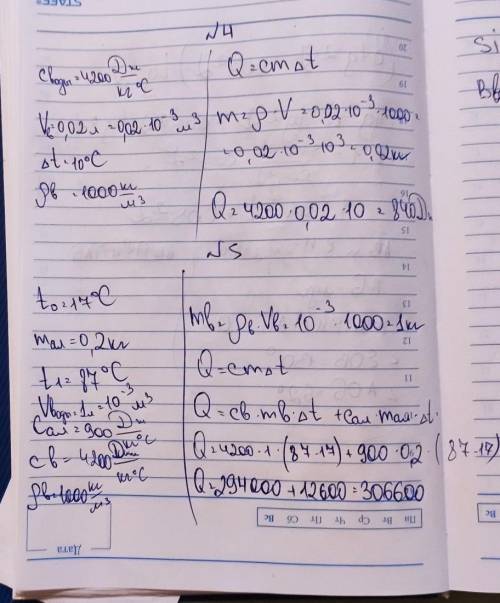 №4
Cводы = 4200 Дж/кг°C
Vв = 0,02 л = 0,02 · 10⁻³ м³
Δt = 10°C
ρв = 1000 кг/м³
Q = cmΔt
m = ρ · V = 0,02 · 10⁻³ · 1000 =
= 0,02 · 10⁻³ 10³ = 0,02 кг
Q = 4200 · 0,02 · 10 = 840 Д
№5
t₀ = 17°C
mал = 0,2 кг
t₁ = 87°C
Vводы = 1л = 10⁻³ м³
Cал = 900 Дж/кг°C
Cв = 4200 Дж/кг°C
ρв = 1000 кг/м³
mв = ρв · Vв = 10⁻³ · 1000 = 1 кг
Q = cmΔt
Q = cв · mв · Δt + cал · mал · Δt
Q = 4200 · 1 · (87-17) + 900 · 0,2 · (87-17
Q = 294000 + 12600 = 306600
Пн Вт Ср Чт Пт Сб Вс
Дата
20
19
16
15
14
13
12
11
Si
Вс